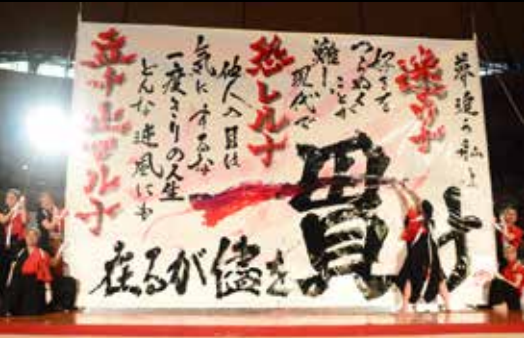 迷ウナ
好きを
つらぬく
ことが
難しい
現代で
恐レルナ
他人の目は
気にするな
一度きりの人生
どんな逆風にも
立チ止マルナ
在るが儘を
貫け